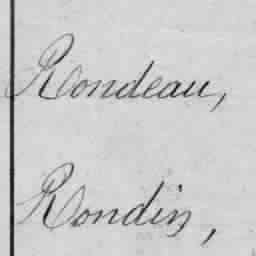 Rondeau,
Rondin,